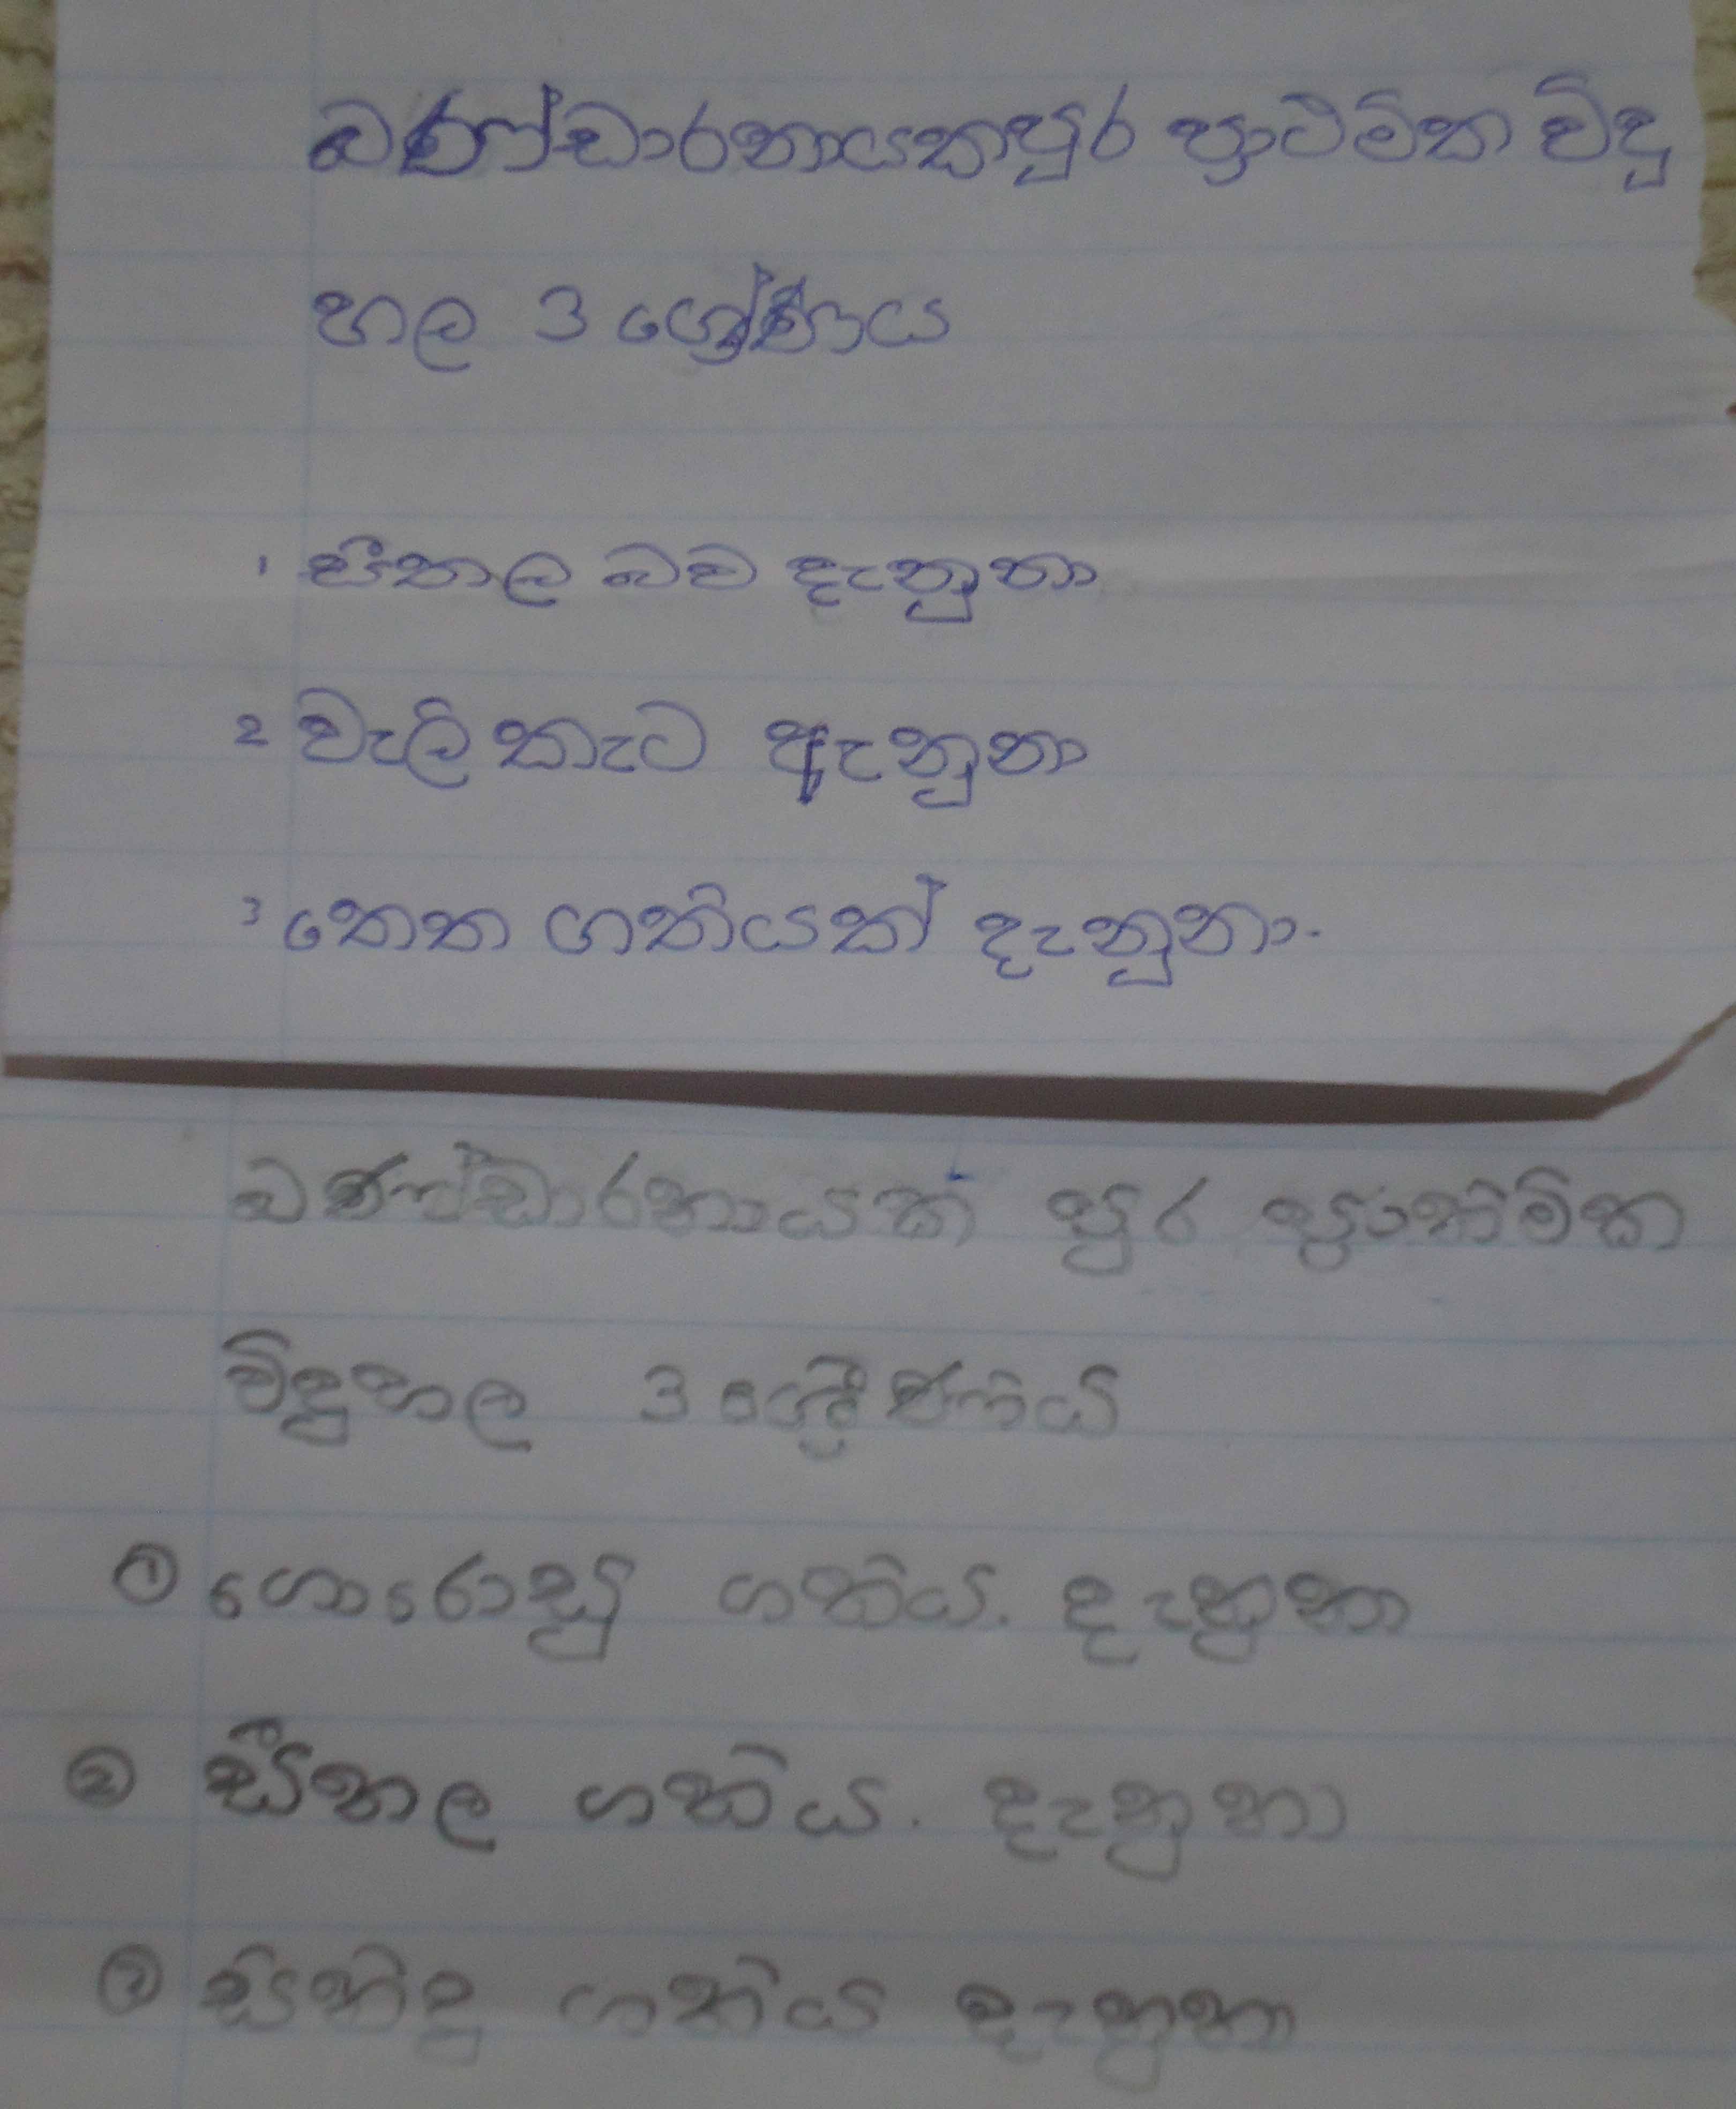 බණ්ඩාරනායකපුර ප්‍රාථමික විදු
හල 3 ශ්‍රේණිය
1 සීතල බව දැනුනා
2 වැලි කැට ඇනුනා
3 තෙත ගතියක් දැනුනා.
බණ්ඩාරනායක පුර ප්‍රාතමික
විදුහල 3 ශ්‍රේණියේ
① ගොරොසු ගතිය. දැනුනා
② සීතල ගතිය. දැනුනා
③ සිනිදු ගතිය දැනුනා